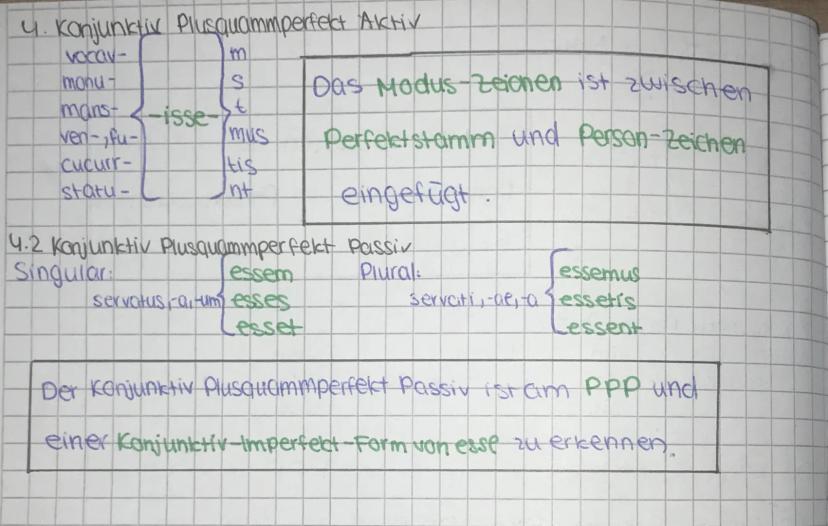 4. Konjunktiv Plusquammperfekt Aktiv
vocav- m
monu- s
mans- -isse- t
ven-, fu- mus
cucurr- tis
statu- nt
Das Modus-Zeichen ist zwischen
Perfektstamm und Person-Zeichen
eingefügt.
4.2 Konjunktiv Plusquammperfekt Passiv
Singular: essem Plural: essemus
servatus,-a,-um esses servati,-ae,-a essetis
esset essent
Der Konjunktiv Plusquammperfekt Passiv ist am PPP und
einer Konjunktiv-Imperfekt-Form von esse zu erkennen.